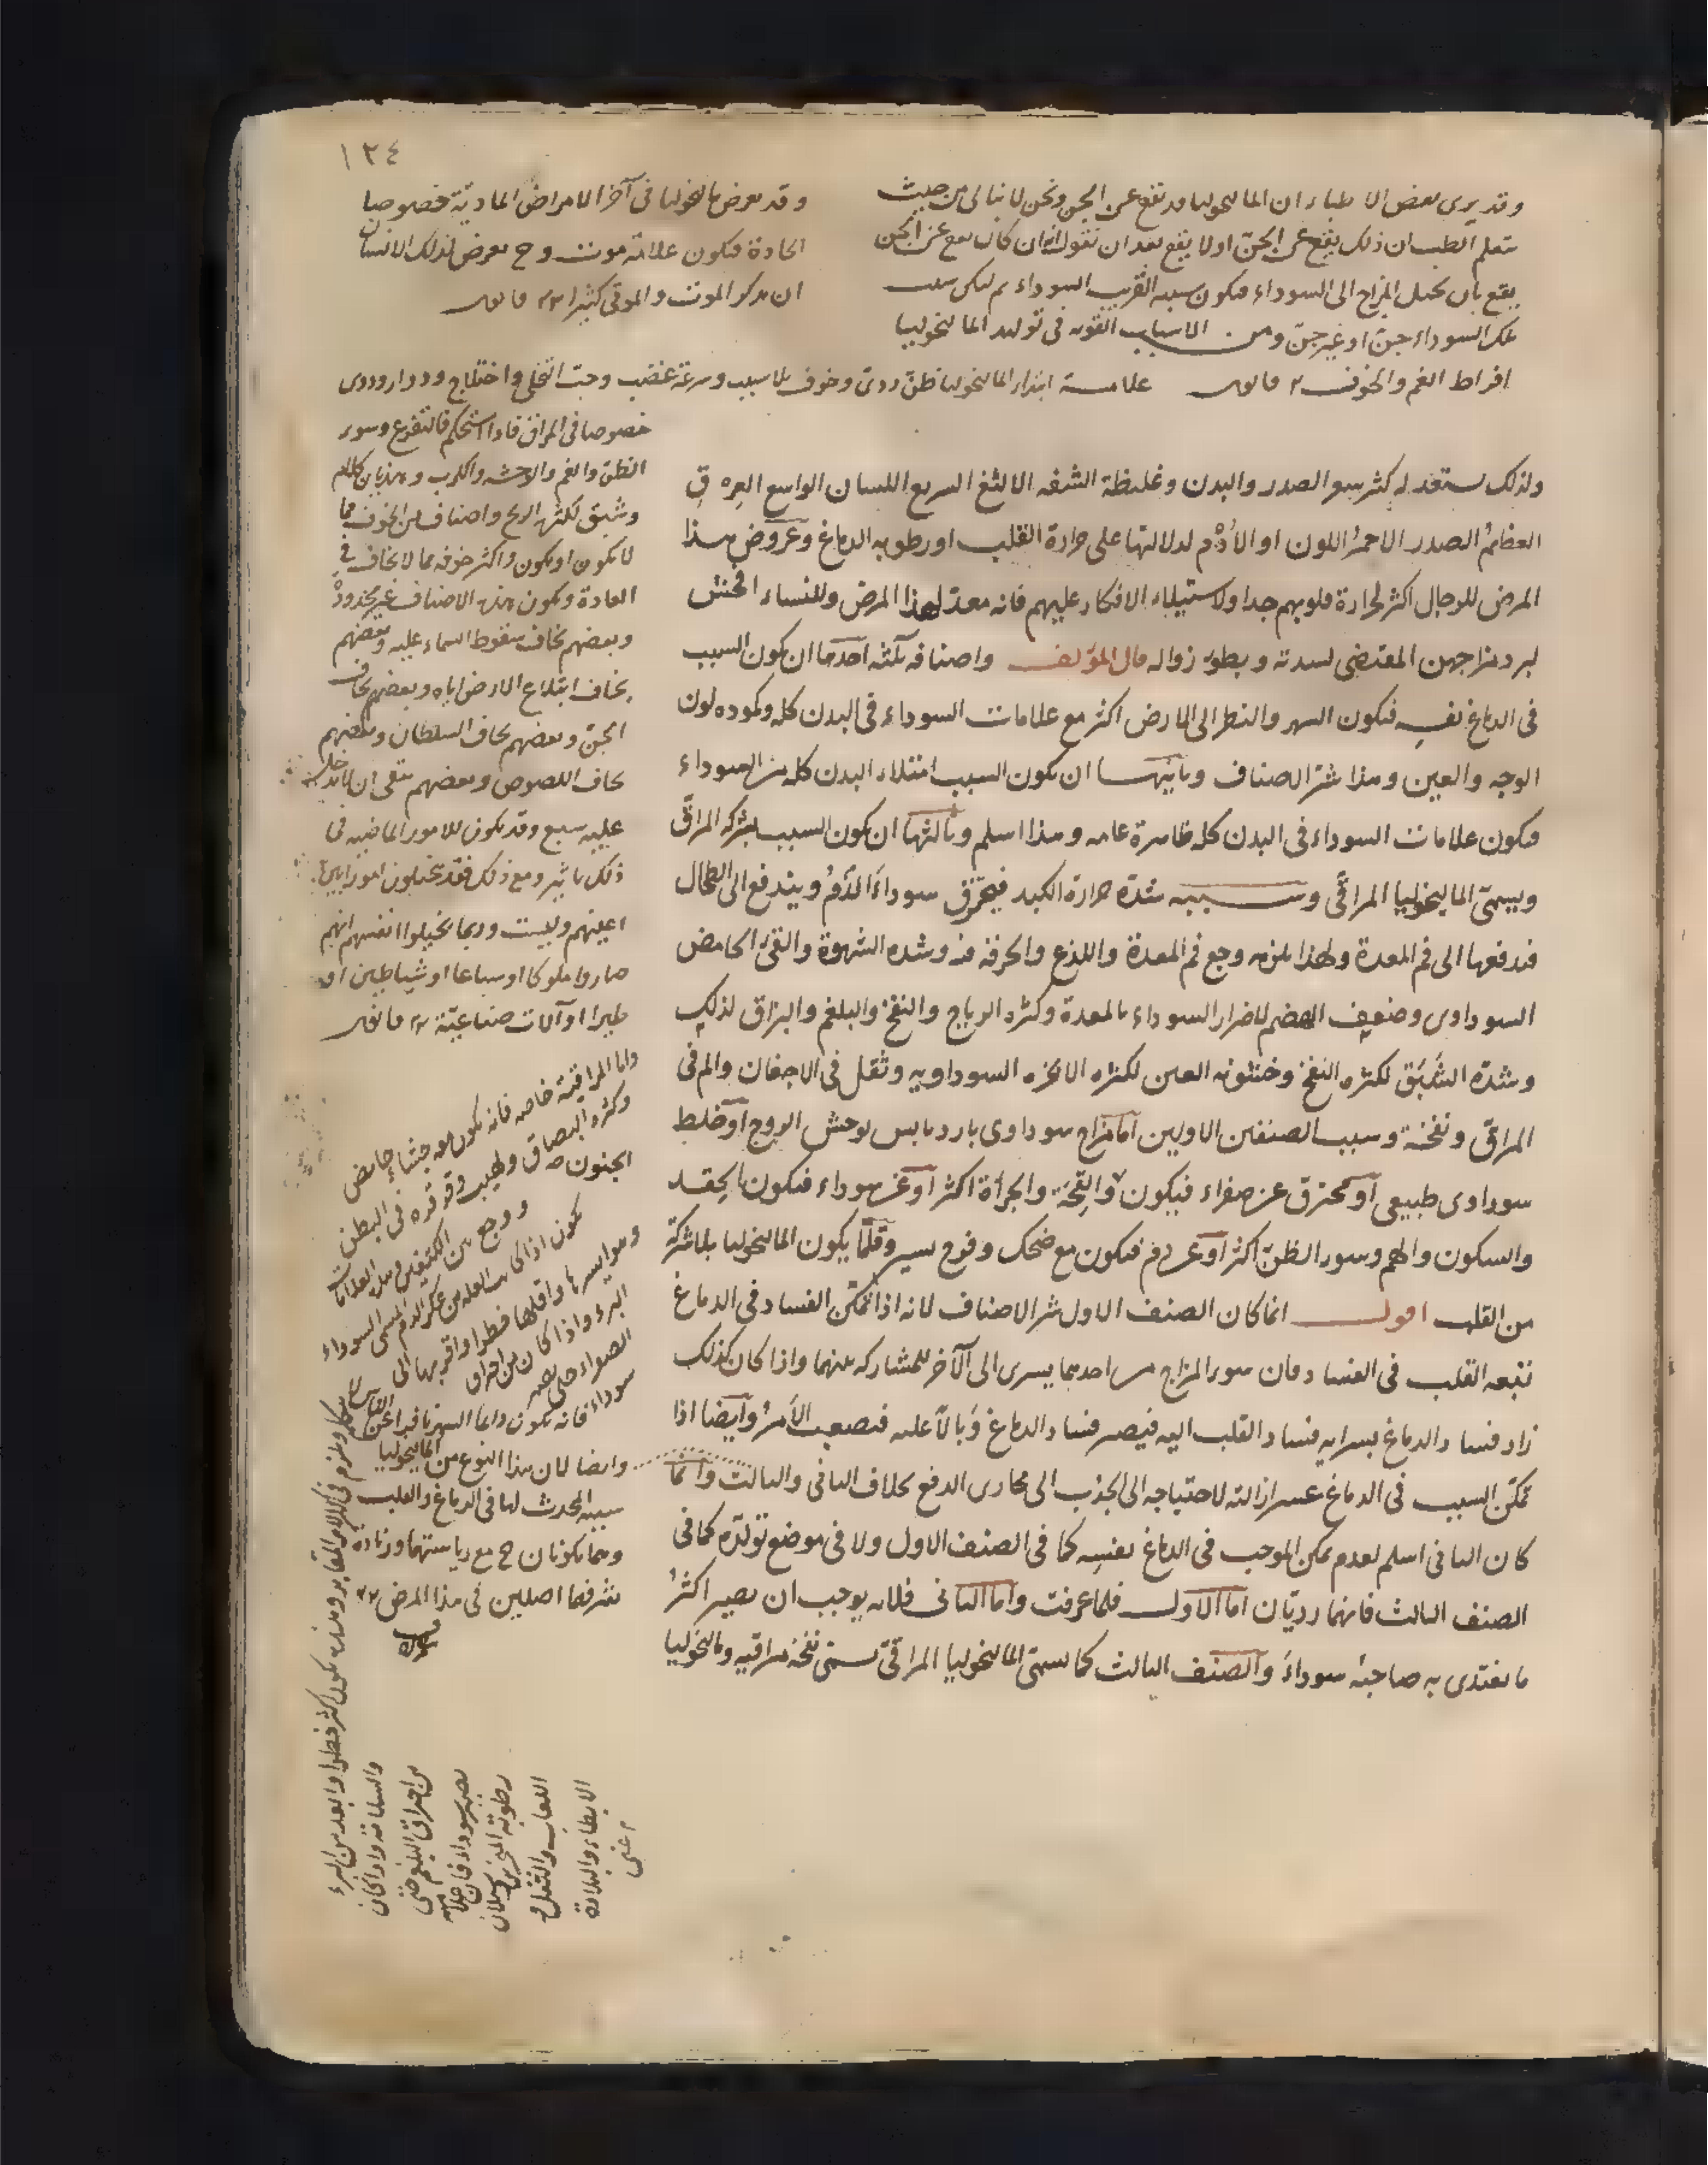 ١٣٤
وقد يرى بعض الاطباء ان الماليخوليا قد تقع عن الجن ونحن لا نبالى من حيث
نتعلم الطب ان ذلك يقع عن الجن او لا يقع بعد ان نقول انه ان كان يقع عن الجن
يقع بان يحيل المزاج الى السوداء فيكون سببه القريب السوداء ثم ليكن سبب
تلك السوداء جن او غير جن ومن الاسباب القوية فى توليد الماليخوليا
افراط الغم والخوف ٢ قانون
وقد يعرض ماليخوليا فى آخر الامراض المادية خصوصا
الحادة فيكون علامة موت وح يعرض لذلك الانسان
ان يذكر الموت والموتى كثيرا ٢٣ قانون
علامة ابتداء الماليخوليا ظن ردئ وخوف بلا سبب وسرعة غضب وحب التخلى واختلاج ودوار ودوى
خصوصا فى المراق فاذا استحكم فالتفزع وسوء
الظن والغم والوحشة والكرب وهذيان كلام
وشبق لكثرة الريح واصناف من الخوف مما
لا يكون او يكون واكثر خوفه مما لا يخاف فى
العادة ويكون هذه الاصناف غير محدودة
وبعضهم يخاف سقوط السماء عليه وبعضهم
يخاف ابتلاع الارض اياه وبعضهم يخاف
الجن وبعضهم يخاف السلطان وبعضهم
يخاف اللصوص وبعضهم يتقى ان لا يدخل
عليه سبع وقد يكون للامور الماضية فى
ذلك تاثير ومع ذلك فقد يتخيلون امورا بين
اعينهم وليست وربما تخيلوا انفسهم انهم
صاروا ملوكا او سباعا او شياطين او
طيرا او آلات صناعية ٢٣ قانون
ولذلك يستعد له كثير شعر الصدر والبدن وغليظة الشفه الالثغ السريع اللسان الواسع العروق
العظام الصدر الاحمر اللون او الادم لدلالتها على حرارة القلب او رطوبه الدماغ وعروض هذا
المرض للرجال اكثر لحرارة قلوبهم جدا ولاستيلاء الافكار عليهم فانه معد لهذا المرض وللنساء افحش
لبرد مزاجهن المقتضى لشدته وبطؤ زواله قال المؤلف واصنافه ثلثة احدها ان يكون السبب
فى الدماغ نفسه فيكون السهر والنظر الى الارض اكثر مع علامات السوداء فى البدن كله وكموده لون
الوجه والعين وهذا شر الاصناف وثانيها ان يكون السبب امتلاء البدن كله من السوداء
فيكون علامات السوداء فى البدن كله ظاهرة عامه وهذا اسلم وثالثها ان يكون السبب بشركه المراق
ويسمى الماليخوليا المراقى وسببه شدة حرارة الكبد فيحترق سوداء الدم ويندفع الى الطحال
فيدفعها الى فم المعدة ولهذا يلزمه وجع فم المعدة واللذع والحرقة فيه وشده الشهوة والقئ الحامض
السوداوى وضعف الهضم لاضرار السوداء بالمعدة وكثرة الرياح والنفخ والبلغم والبزاق لذلك
وشدة الشبق لكثرة النفخ وخشونه العين لكثره الابخره السوداويه وثقل فى الاجفان والم فى
المراق ونفخة وسبب الصنفين الاولين اما مزاج سوداوى بارد يابس يوحش الروح او خلط
سوداوى طبيعى او محترق عن صفراء فيكون والقحة والجرأة اكثر او عن سوداء فيكون الحقد
والسكون والهم وسوء الظن اكثر او عن دم فيكون مع ضحك وفرح يسير وقلما يكون الماليخوليا بلا شركة
من القلب اقول انما كان الصنف الاول شر الاصناف لانه اذا تمكن الفساد فى الدماغ
تبعه القلب فى الفساد فان سوء المزاج من احدهما يسرى الى الآخر للمشاركه بينهما واذا كان كذلك
زاد فساد الدماغ بسراية فساد القلب اليه فيصير فساد الدماغ وبالا عليه فيصعب الامر وايضا اذا
تمكن السبب فى الدماغ عسر ازالته لاحتياجه الى الجذب الى مجارى الدفع بخلاف الثانى والثالث وانما
كان الثانى اسلم لعدم تمكن الموجب فى الدماغ نفسه كما فى الصنف الاول ولا فى موضع تولده كما فى
الصنف الثالث فانهما رديان اما الاول فلما عرفت واما الثانى فلانه يوجب ان يصير اكثر
ما يغتذى به صاحبه سوداء والصنف الثالث كما يسمى الماليخوليا المراقى يسمى نفخة مراقيه وماليخوليا
واما المراقية خاصه فانه يكون معه جشاء حامض
وكثره البصاق ولهيب وقرقره فى البطن
ووجع بين الكتفين
وايضا لان هذا النوع من الماليخوليا
سببه المحدث لها فى الدماغ والقلب
وهما يكونان ح مع رياستهما وزيادة
شرفهما اصلين فى هذا المرض ٢٣
والسلامة واذا كان
من احراق البلغم حتى
يصير سوداء فان علامته
رطوبة المنخرين وسيلان
اللعاب والثقل و
الابطاء والبلادة